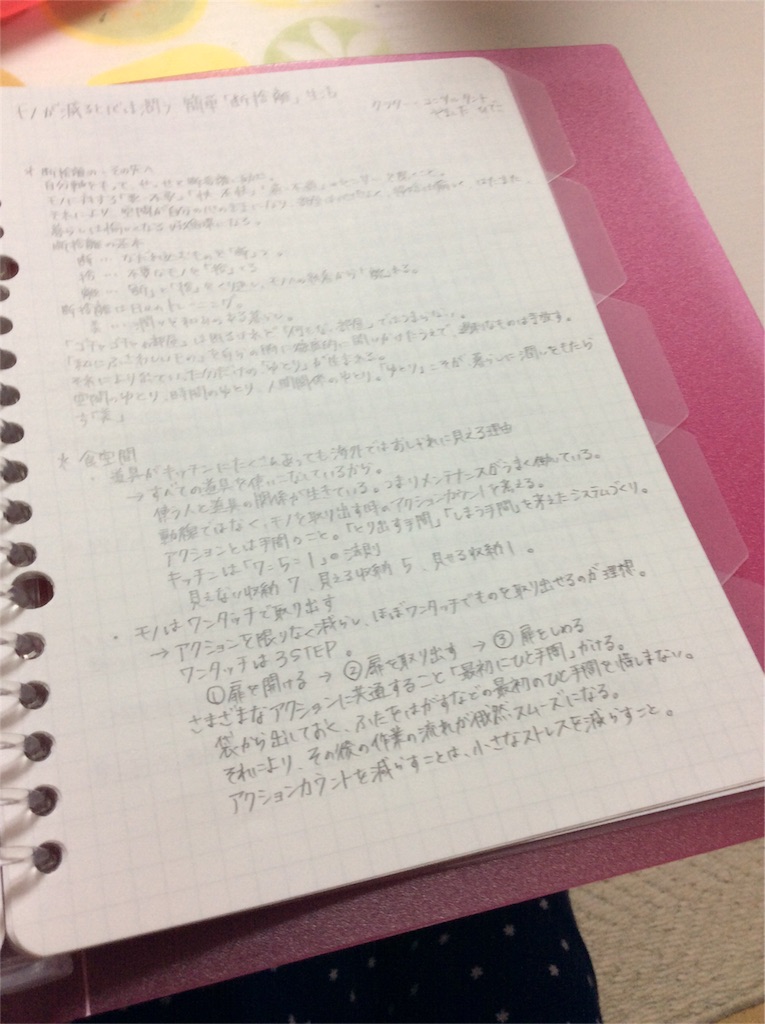 モノが減ると心は潤う 簡単「断捨離」生活
クラター・コンサルタント
やました ひでこ
* 断捨離の、その先へ
自分軸をもって、せっせと断捨離
モノに対する「要・不要」「快・不快」
それにより、空間が自分の
暮らしは
断捨離の基本
断…なだれ込むものを「断」つ。
捨…不要なモノを「捨」てる
離…「断」と「捨」をくり返し、モノへの執着から「離」れる。
断捨離は日々のトレーニング。
美…潤いと和みのある暮らし。
「ゴチャゴチャの部屋」は困るけれど「な部屋」ではつまらない。
「私にふさわしいもの」を自分の術に積極的に問いかけたうえで、過剰なものは手放す。
それにより空いた分だけの「ゆとり」が生まれる。
空間のゆとり、時間のゆとり、人間関係のゆとり。「ゆとり」こそが、暮らしに潤いをもたら
す「美」
* 食空間
・道具がキッチンにたくさんあっても海外ではおしゃれに見える理由
→すべての道具を使いこなしているから。
使う人と道具の関係が生きている。つまりメンテナンスがうまく働いている。
動線ではなく、モノを取り出す時のアクションカウントを考える。
アクションとは手間のこと。「とり出す手間」「しまう手間」を考えたシステムづくり。
キッチンは「7:5:1」の法則
見えない収納 7、見える収納 5、見せる収納 1。
・モノはワンタッチで取り出す
→アクションを限りなく減らし、ほぼワンタッチでものを取り出せるのが理想。
ワンタッチは3STEP。
①扉を開ける → ②扉を取り出す → ③扉をしめる
さまざまなアクションに共通すること「最初にひと手間」かける。
袋から出しておく、ふたをはがすなどの最初のひと手間を惜しまない。
それにより、その後の作業の流れが俄然スムーズになる。
アクションカウントを減らすことは、小さなストレスを減らすこと。